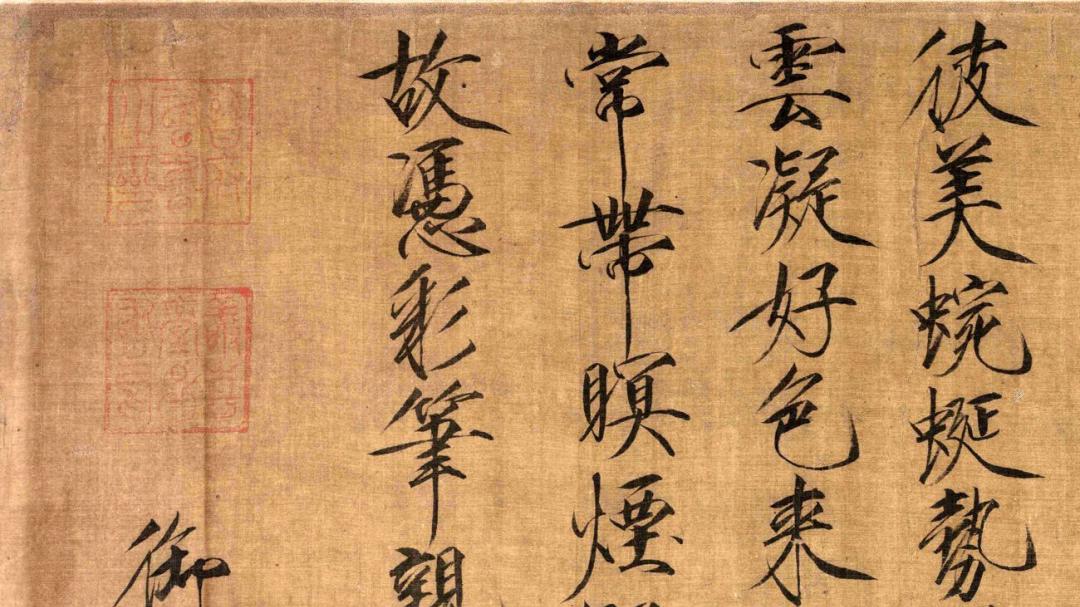 彼美蜿蜒勢
雲凝好色来
常帶瞑煙
故憑彩筆親
御